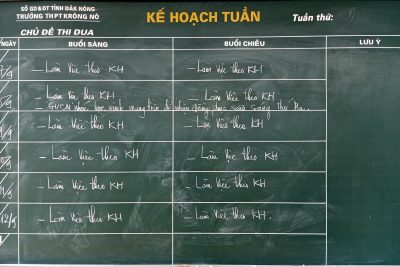 SỞ GD&ĐT TỈNH ĐĂK NÔNG
TRƯỜNG THPT KRÔNG NÔ
KẾ HOẠCH TUẦN
Tuần thứ:
CHỦ ĐỀ THI ĐUA
NGÀY BUỔI SÁNG BUỔI CHIỀU LƯU Ý
- Làm việc theo KH - Làm việc theo KH
- Làm việc theo KH - Làm việc theo KH
- GVCN học sinh mang
- Làm việc theo KH - Làm việc theo KH
- Làm việc theo KH - Làm việc theo KH
- Làm việc theo KH - Làm việc theo KH
- Làm việc theo KH - Làm việc theo KH.